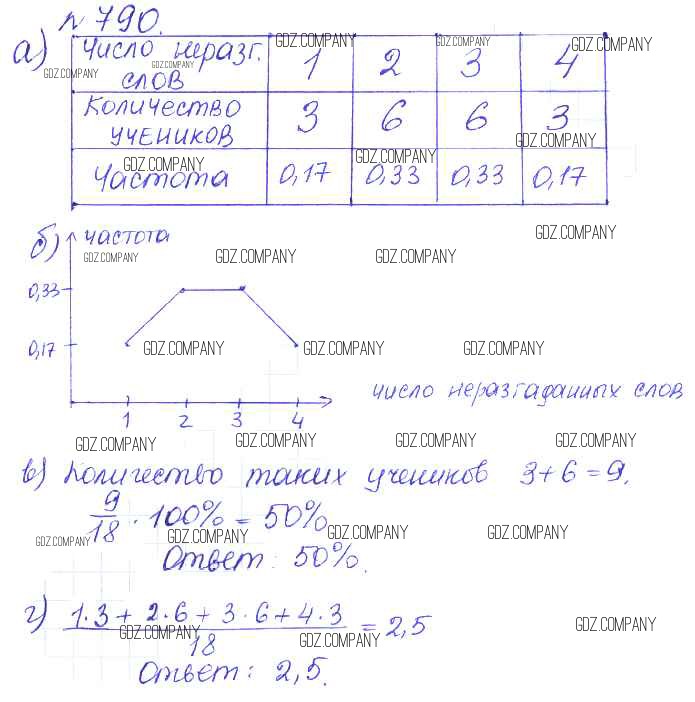 № 790.
а) Число неразг. слов 1 2 3 4
Количество учеников 3 6 6 3
Частота 0,17 0,33 0,33 0,17
б) частота
0,33
0,17
1 2 3 4
число неразгаданных слов
в) Количество таких учеников 3+6=9.
9/18 · 100% = 50%
Ответ: 50%.
г) 1·3 + 2·6 + 3·6 + 4·3 / 18 = 2,5
Ответ: 2,5.
GDZ.COMPANY GDZ.COMPANY GDZ.COMPANY
GDZ.COMPANY GDZ.COMPANY
GDZ.COMPANY
GDZ.COMPANY GDZ.COMPANY
GDZ.COMPANY
GDZ.COMPANY GDZ.COMPANY GDZ.COMPANY
GDZ.COMPANY GDZ.COMPANY GDZ.COMPANY
GDZ.COMPANY GDZ.COMPANY GDZ.COMPANY GDZ.COMPANY
GDZ.COMPANY GDZ.COMPANY GDZ.COMPANY GDZ.COMPANY
GDZ.COMPANY GDZ.COMPANY GDZ.COMPANY